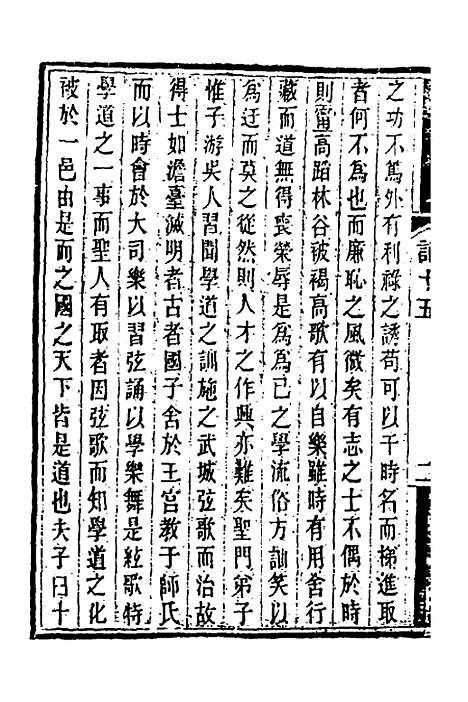 之功不篤外有利祿之誘苟可以干時名而梯進取
者何不為也而廉恥之風微矣有志之士不偶於時
則甯高蹈林谷被褐高歌有以自樂雖時有用舍行
藏而道無得喪榮辱是為為己之學流俗方訕笑以
為迂而莫之從然則人才之作興亦難矣聖門弟子
惟子游吳人習聞學道之訓施之武城弦歌而治故
得士如澹臺滅明者古者國子舍於王宮教于師氏
而以時會於大司樂以習弦誦以學樂舞是絃歌特
學道之一事而聖人有取者因弦歌而知學道之化
被於一邑由是而之國之天下皆是道也夫子曰十
十五
二